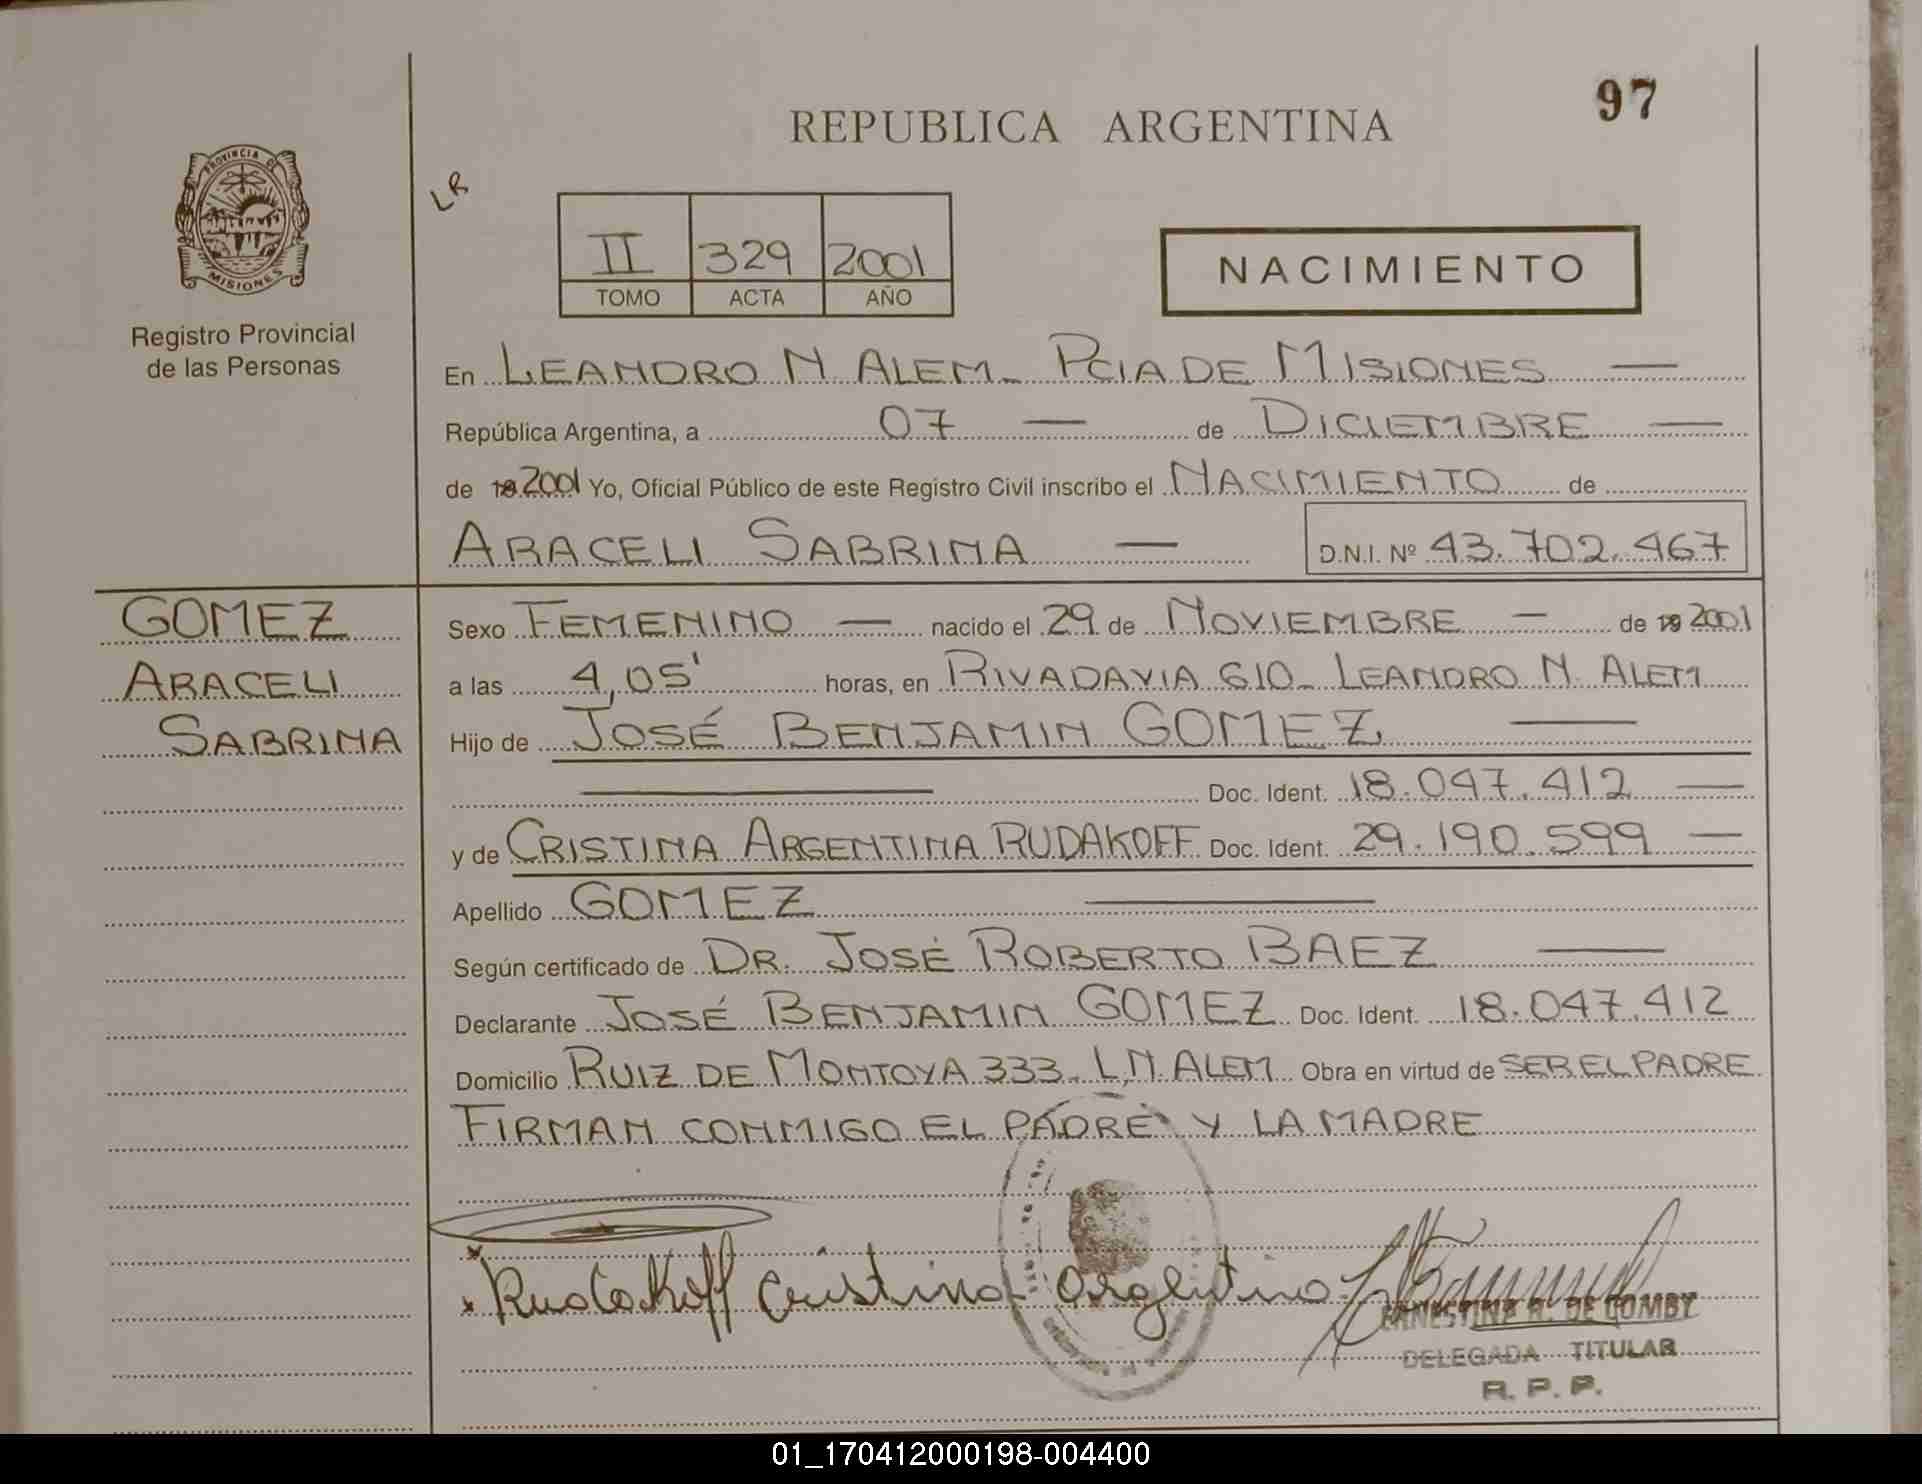 97
REPUBLICA ARGENTINA
PROVINCIA DE
MISIONES
Registro Provincial
de las Personas
LR
II 329 2001
TOMO ACTA AÑO
NACIMIENTO
En LEANDRO N ALEM - PCIA DE MISIONES —
República Argentina, a 07 — de DICIEMBRE —
de 19 2001 Yo, Oficial Público de este Registro Civil inscribo el NACIMIENTO de
ARACELI SABRINA — D.N.I. Nº 43.702.467
GOMEZ
ARACELI
SABRINA
Sexo FEMENINO — nacido el 29 de NOVIEMBRE — de 19 2001
a las 4,05' horas, en RIVADAVIA 610 - LEANDRO N. ALEM
Hijo de JOSÉ BENJAMIN GOMEZ —
— Doc. Ident. 18.047.412 —
y de CRISTINA ARGENTINA RUDAKOFF Doc. Ident. 29.190.599 —
Apellido GOMEZ —
Según certificado de DR. JOSÉ ROBERTO BAEZ —
Declarante JOSÉ BENJAMIN GOMEZ Doc. Ident. 18.047.412
Domicilio RUIZ DE MONTOYA 333 - L.N. ALEM Obra en virtud de SER EL PADRE
FIRMAN CONMIGO EL PADRE Y LA MADRE
Rudakoff Cristina Argentina
ERNESTINA R. DE COMBY
DELEGADA TITULAR
R. P. P.
01_170412000198-004400